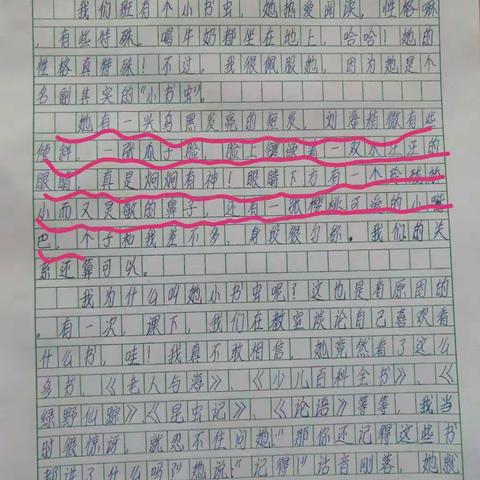 我们班有个小书虫，她热爱阅读，性格嘛
，有些特殊。喝牛奶都坐在地上，哈哈！她的
性格真特殊！不过，我很佩服她，因为她是个
名副其实的“小书虫”。
她有一头乌黑发亮的短发，刘海稍微有些
倾斜。一张瓜子脸，脸上镶嵌着一双水汪汪的
眼睛，真是炯炯有神！眼睛下方有一个
小而又灵敏的鼻子，还有一张樱桃可爱的小嘴
巴。个子和我差不多，身投很匀称。我们的关
系还算可以。
我为什么叫她小书虫呢？这也是有原因的
。有一次，课下，我们在教室谈论自己喜欢看
什么书，哇！我真不敢相信，她竟然看了这么
多书，《老人与海》、《少儿百科全书》、《
绿野仙踪》、《昆虫记》、《论语》等等，我当
时很惊讶，就忍不住问她：“那你还记得这些书
都讲了什么吗？”她说：“记得！”话音刚落，她就